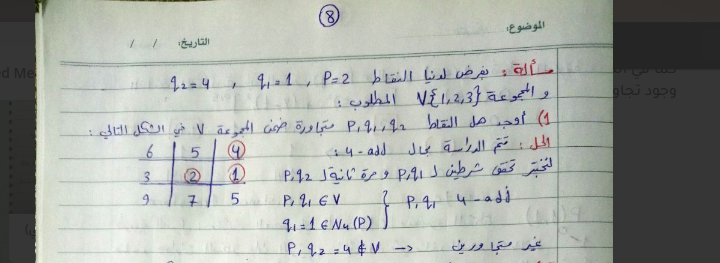 8
الموضوع:
التاريخ: / /
مسألة: بفرض لدينا النقاط P=2 , q1=1 , q2=4
و المجموعة V{1,2,3} المطلوب:
1) أوجد هل النقاط P,q1,q2 متجاورة ضمن المجموعة V في الشكل التالي:
الحل: تتم الدراسة بحال 4-add:
لنختبر تحقق شرطين لـ P,q1 و مرة ثانية لـ P,q2
6 5 4
3 2 1
9 7 5
P,q1 ∈ V
q1=1 ∈ N4(P)
} P,q1 4-add
P,q2=4 ∉ V → غير متجاورين